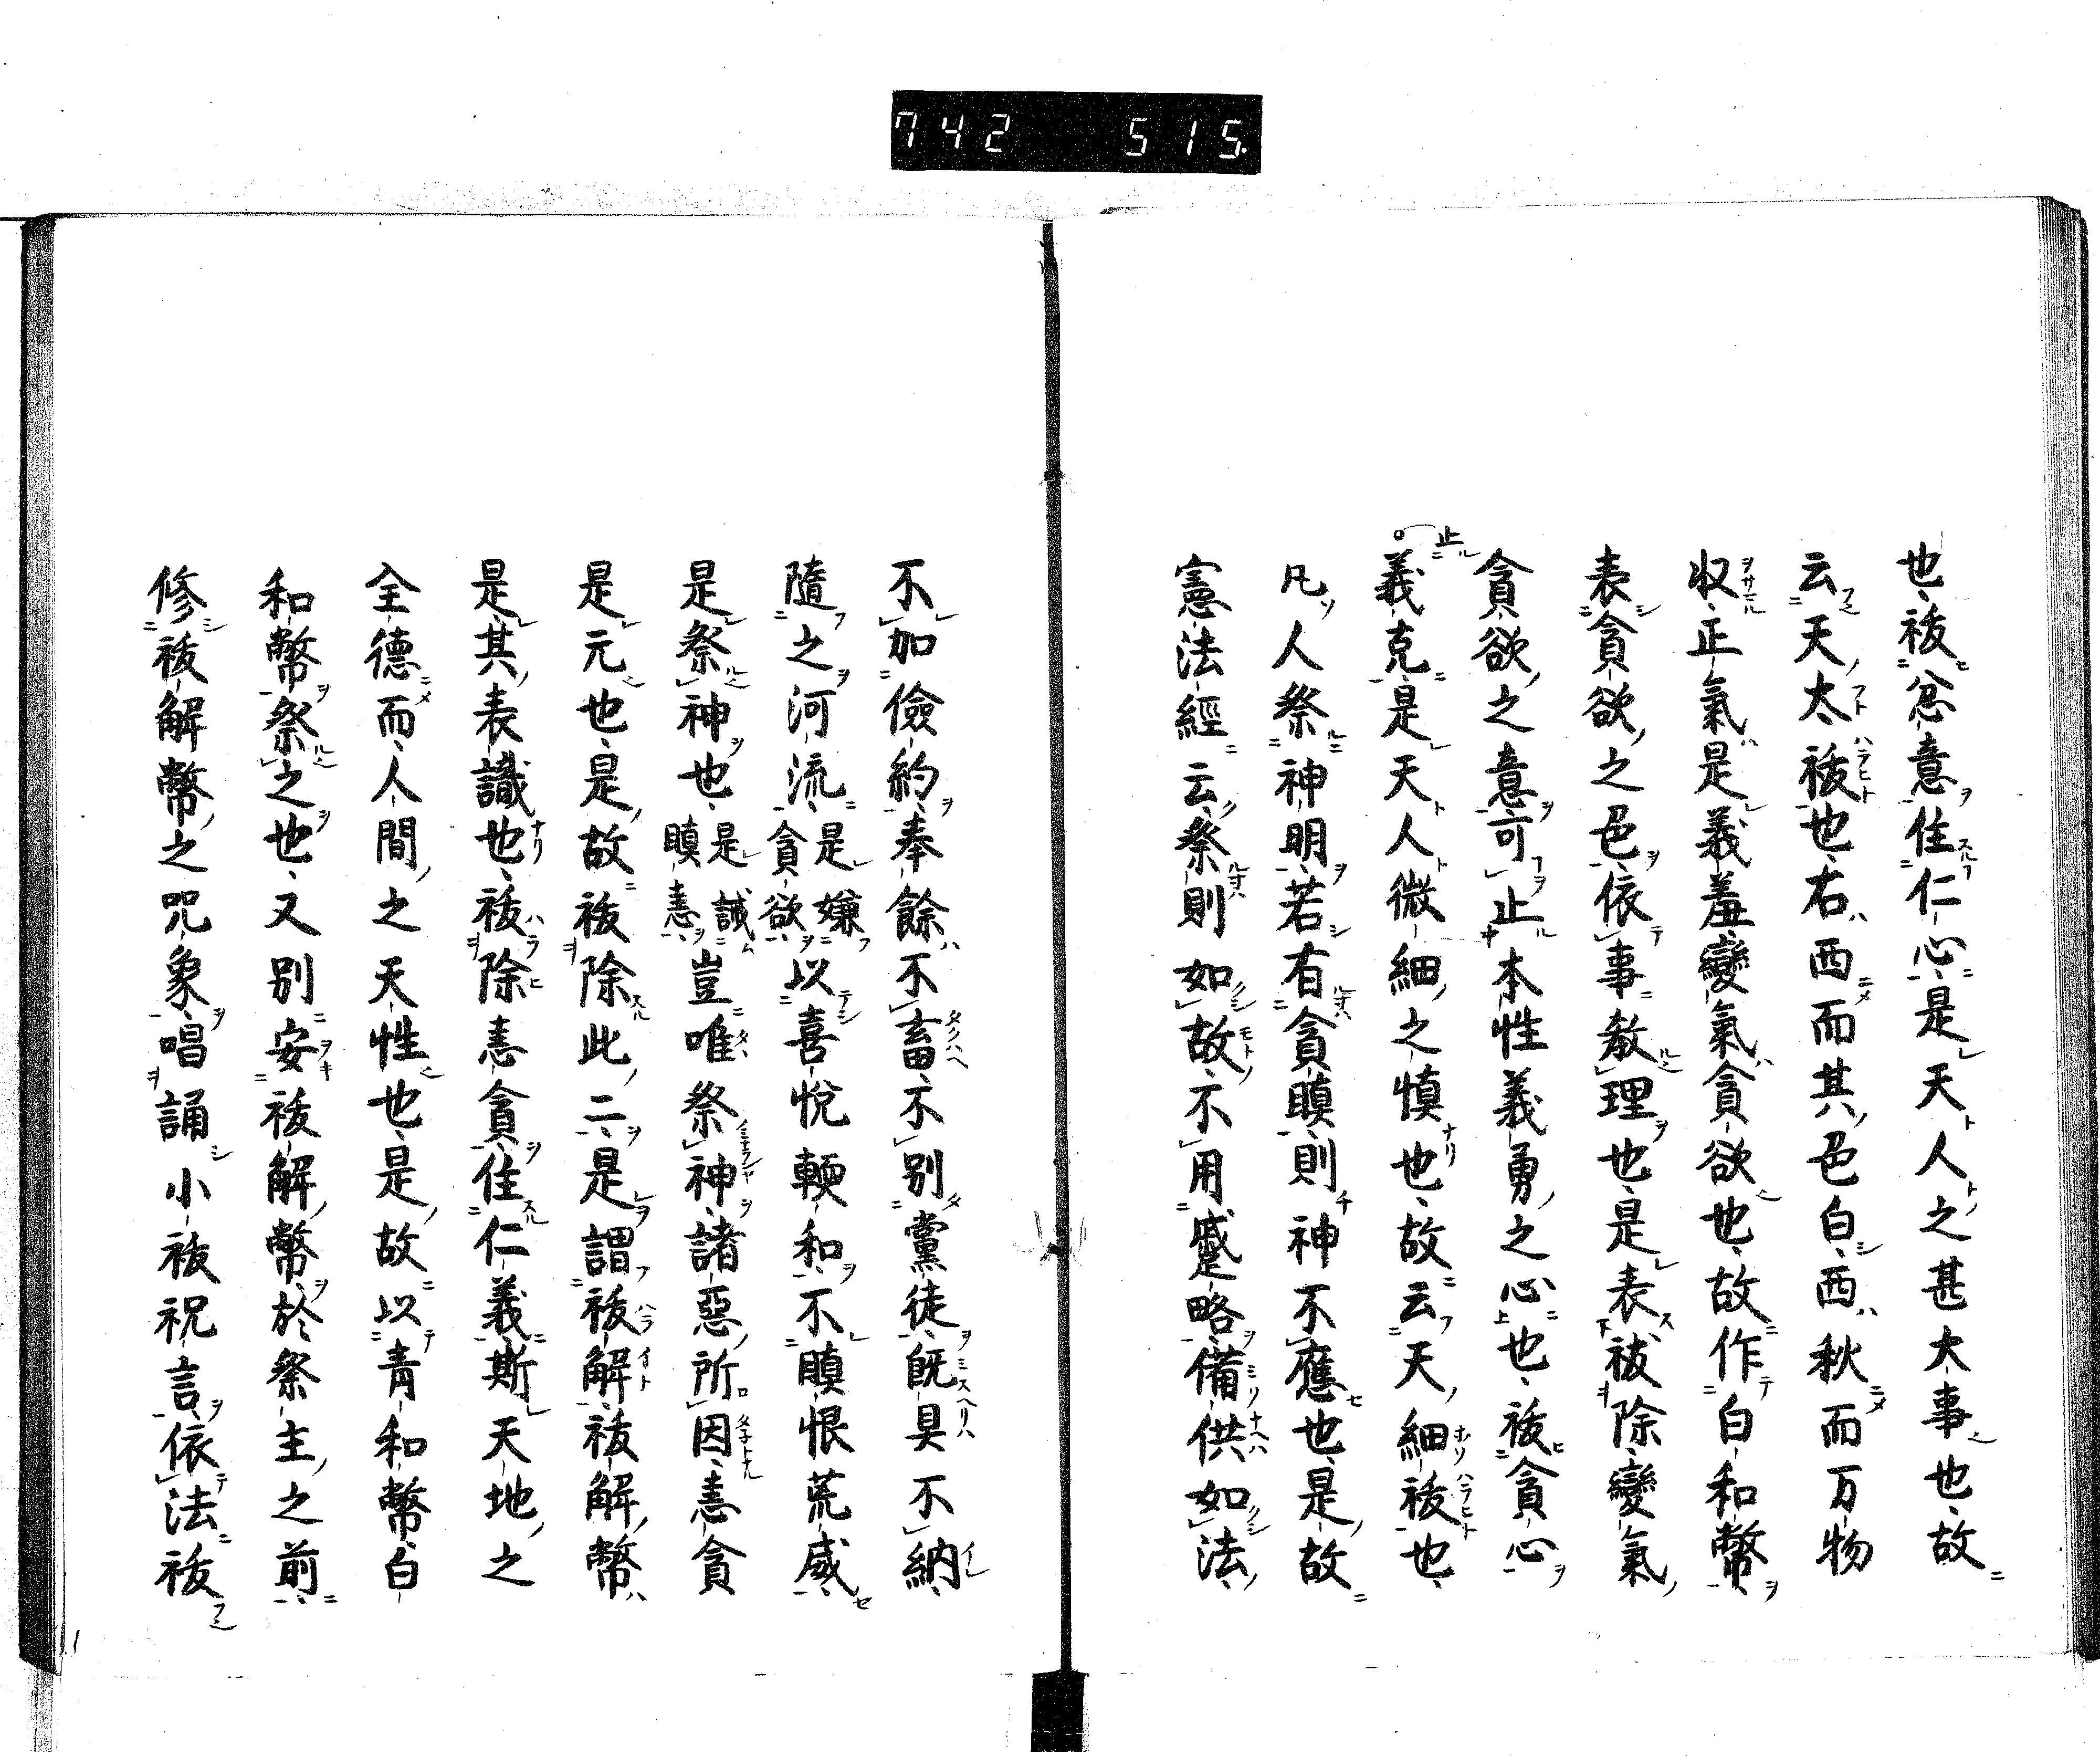 742 515.
也祓忿意住仁心是天人之甚大事也故
云天太祓也右西而其色白西秋而万物
収正氣是義羞變氣貪欲也故作白和幣
表貪欲之色依事教理也是表祓除變氣
貪欲之意可止本性義勇之心也祓貪心
止
義克是天人微細之慎也故云天細祓也
凡人祭神明若有貪瞋則神不應也是故
憲法經云祭則如故不用蹙略備供如法
不加儉約奉餘不畜不別黨徒既具不納
隨之河流是嫌貪欲以喜悅輭和不瞋恨荒威
是祭神也是誡瞋恚豈唯祭神諸惡所因恚貪
是元也是故祓除此二是謂祓解祓解幣
是其表識也祓除恚貪住仁義斯天地之
全德而人間之天性也是故以青和幣白
和幣祭之也又別安祓解幣於祭主之前
修祓解幣之咒象唱誦小祓祝言依法祓